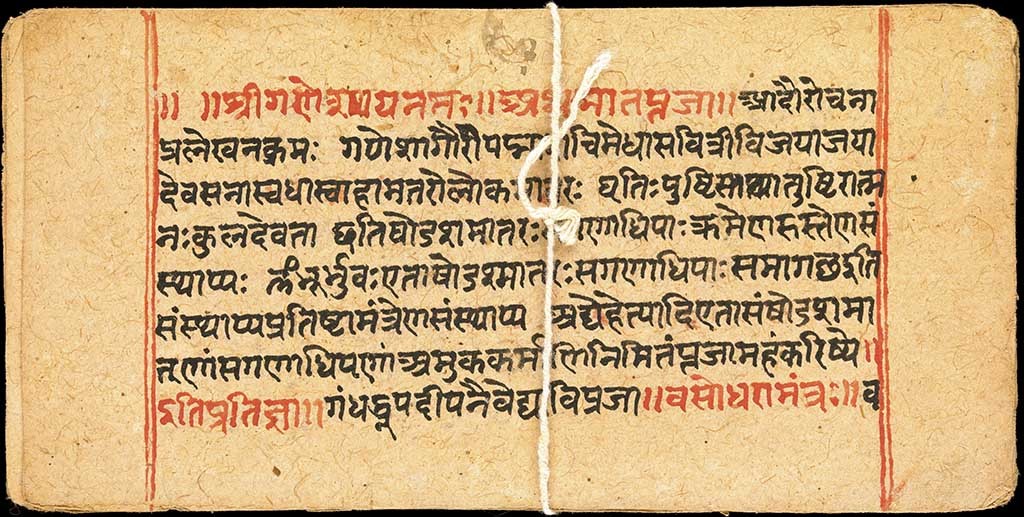 ॥ ॥श्रीगणेशायनमः॥ अथ मातपूजा॥ आदौरोचना
प्रलेखनक्रमः गणेशागौरीपद्मा शचिमेधासवित्रीविजयाजया
देवसेनास्वधास्वाहामातरोलोक मातरः धृतिःपुष्टिस्तथातुष्टिरात्म
नःकुलदेवता धृतिषोडशमातरः सगणाधिपाःक्रमेणहस्तेणसं
स्थाप्यः भूर्भुवःएताषोडशमातरःसगणाधिपाःसमागछइति
संस्थाप्यप्रतिष्ठामंत्रेणसंस्थाप्य अद्येहेत्यादिएतासंषोडशमा
तृणांसगणाधिपणांअमुककर्माणिनिमितंपूजामहंकरिष्ये॥
इतिप्रतिज्ञा॥ गंधद्रुपदीपनैवैद्य विप्रजा॥वसोधरामंत्रः॥व